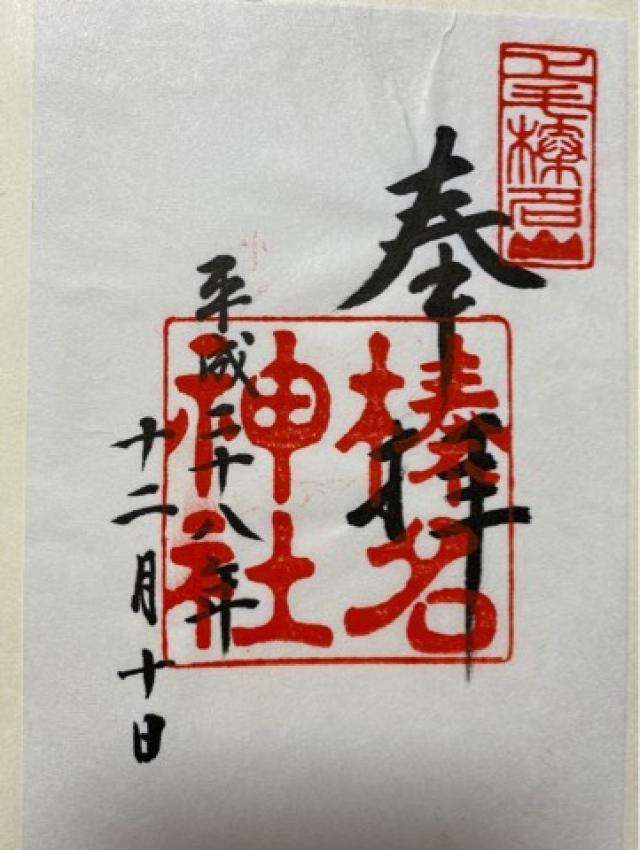 上毛榛名山
奉拝
榛名
神社
平成二十八年
十二月十日